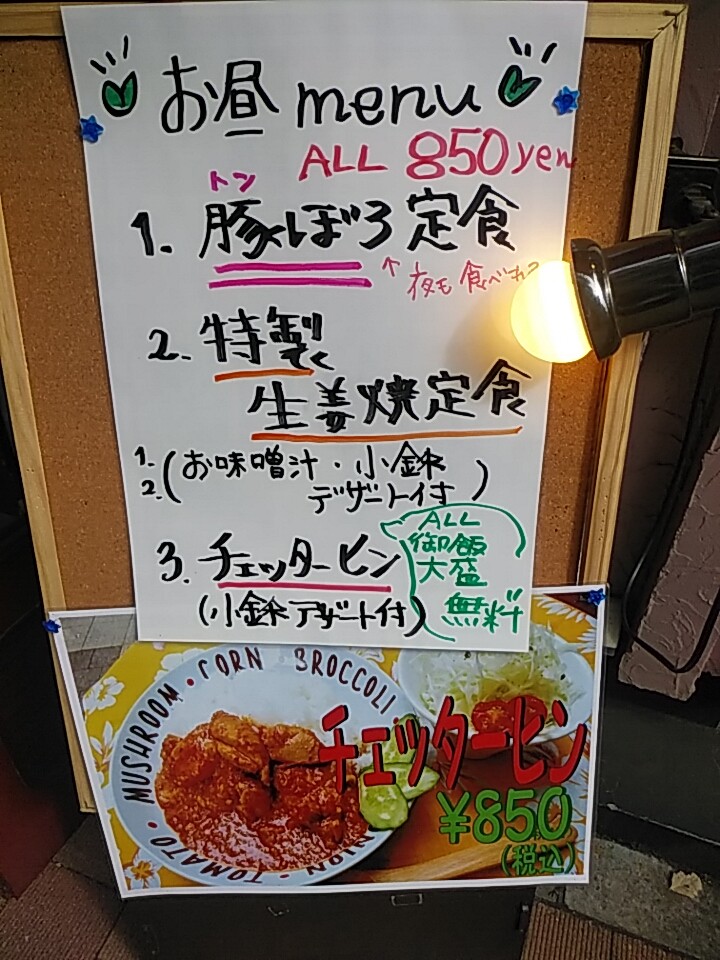 お昼 menu
ALL 850yen
トン
1. 豚ぼろ定食
↑ 夜も食べれ
2. 特製
生姜焼定食
1.
2. (お味噌汁・小鉢
デザート付)
3. チェッターヒン
(小鉢 デザート付)
ALL
御飯
大盛
無料
MUSHROOM・CORN・BROCCOLI
TOMATO・ONION
チェッターヒン
¥850
(税込)